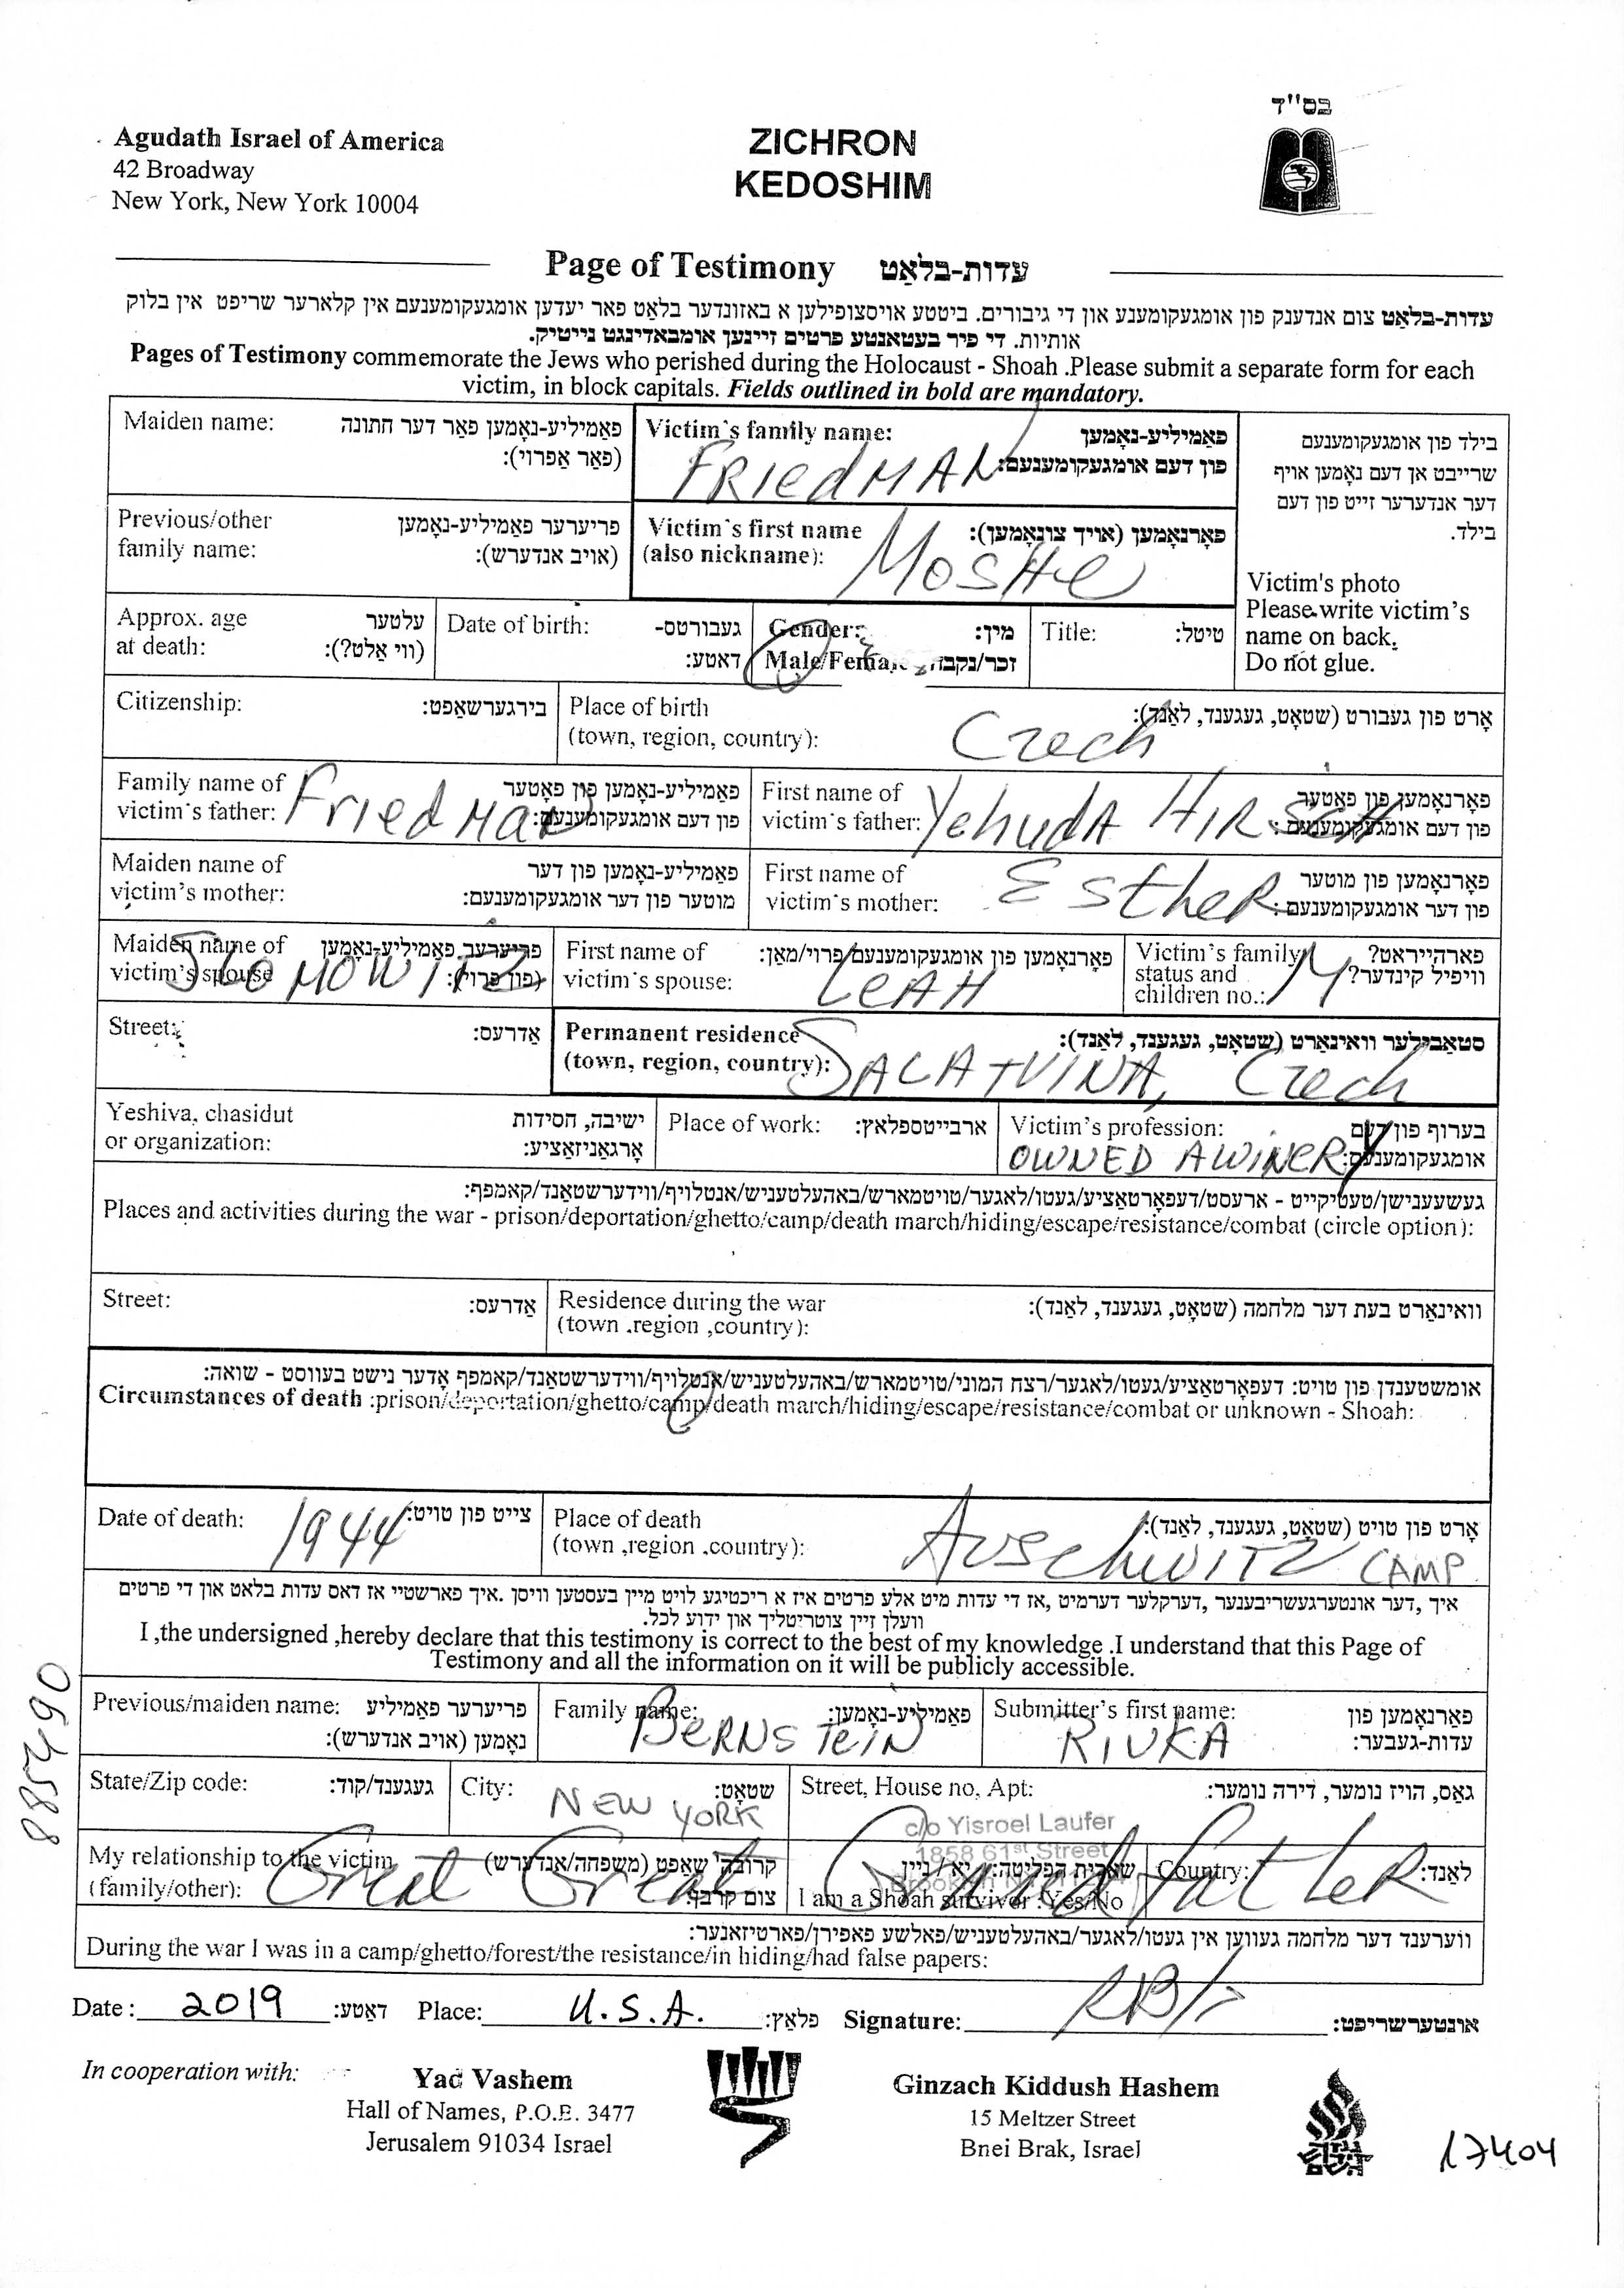 בס"ד
Agudath Israel of America
42 Broadway
New York, New York 10004
ZICHRON
KEDOSHIM
Page of Testimony עדות-בלאַט
עדות-בלאַט צום אנדענק פון אומגעקומענע און די גיבורים. ביטטע אויסצופילען א באזונדער בלאַט פאר יעדען אומגעקומענעם אין קלארער שריפט אין בלוק
אותיות. די פיר בעטאנטע פרטים זיינען אומבאדינגט נייטיק.
Pages of Testimony commemorate the Jews who perished during the Holocaust - Shoah .Please submit a separate form for each
victim, in block capitals. Fields outlined in bold are mandatory.
Maiden name: פאַמיליע-נאָמען פאַר דער חתונה
(פאַר אַפרוי):
Victim's family name: פאַמיליע-נאָמען
פון דעם אומגעקומענעם:
FRIEdMAN
בילד פון אומגעקומענעם
שרייבט אן דעם נאָמען אויף
דער אנדערער זייט פון דעם
בילד.
Victim's photo
Please write victim's
name on back.
Do not glue.
Previous/other
family name: פריערער פאַמיליע-נאָמען
(אויב אנדערש):
Victim's first name
(also nickname): פאָרנאָמען (אויך צונאָמען):
MOSHE
Approx. age
at death: עלטער
(ווי אַלט?):
Date of birth: געבורטס-
דאַטע:
Gender: מין:
Male/Female זכר/נקבה
Title: טיטל:
Citizenship: בירגערשאַפט:
Place of birth
(town, region, country): אָרט פון געבורט (שטאָט, געגענד, לאַנד):
Czech
Family name of
victim's father: פאַמיליע-נאָמען פון פאָטער
פון דעם אומגעקומענעם:
Friedman
First name of
victim's father: פאָרנאָמען פון פאָטער
פון דעם אומגעקומענעם:
Yehuda HIRSCH
Maiden name of
victim's mother: פאַמיליע-נאָמען פון דער
מוטער פון דער אומגעקומענעם:
First name of
victim's mother: פאָרנאָמען פון מוטער
פון דער אומגעקומענעם:
Esther
Maiden name of
victim's spouse פריערער פאַמיליע-נאָמען
(פון פרוי):
SLOMOWITZ
First name of
victim's spouse: פאָרנאָמען פון אומגעקומענעם פרוי/מאַן:
LEAH
Victim's family
status and
children no.: פארהייראט?
וויפיל קינדער?
M
Street: אַדרעס:
Permanent residence
(town, region, country): סטאַבילער וואינאָרט (שטאָט, געגענד, לאַנד):
SALATVINA, Czech
Yeshiva, chasidut
or organization: ישיבה, חסידות
אָרגאַניזאַציע:
Place of work: ארבייטספלאץ:
Victim's profession: בערוף פון דעם
אומגעקומענעם:
OWNED A WINERY
געשעענישן/טעטיקייט - ארעסט/דעפאָרטאַציע/געטו/לאַגער/טויטמארש/באהעלטעניש/אנטלויף/ווידערשטאַנד/קאמפף:
Places and activities during the war - prison/deportation/ghetto/camp/death march/hiding/escape/resistance/combat (circle option):
Street: אַדרעס:
Residence during the war
(town .region ,country): וואינאָרט בעת דער מלחמה (שטאָט, געגענד, לאַנד):
אומשטענדן פון טויט: דעפאָרטאַציע/געטו/לאגער/רצח המוני/טויטמארש/באהעלטעניש/אַנטלויף/ווידערשטאַנד/קאמפף אָדער נישט בעווסט - שואה:
Circumstances of death :prison/deportation/ghetto/camp/death march/hiding/escape/resistance/combat or unknown - Shoah:
Date of death: צייט פון טויט:
1944
Place of death
(town ,region .country): אָרט פון טויט (שטאָט, געגענד, לאַנד):
Auschwitz CAMP
איך ,דער אונטערגעשריבענער ,דערקלער דערמיט ,אז די עדות מיט אלע פרטים איז א ריכטיגע לויט מיין בעסטען וויסן .איך פארשטיי אז דאס עדות בלאט און די פרטים
וועלן זיין צוטריטליך און ידוע לכל.
I ,the undersigned ,hereby declare that this testimony is correct to the best of my knowledge .I understand that this Page of
Testimony and all the information on it will be publicly accessible.
Previous/maiden name: פריערער פאַמיליע
נאָמען (אויב אנדערש):
Family name: פאַמיליע-נאָמען:
BERNSTEIN
Submitter's first name: פאָרנאָמען פון
עדות-געבער:
RIVKA
State/Zip code: געגענד/קוד:
City: שטאָט:
NEW YORK
Street, House no, Apt: גאַס, הויז נומער, דירה נומער:
c/o Yisroel Laufer
1858 61st Street
My relationship to the victim
(family/other): קרובה' שאַפט (משפחה/אנדערש)
צום קרבן:
Great Great Grandfather
שארית הפליטה: יא/ניין
I am a Shoah survivor :Yes/No
Country: לאַנד:
ווערענד דער מלחמה געווען אין געטו/לאַגער/באהעלטעניש/פאלשע פאפירן/פארטיזאנער:
During the war I was in a camp/ghetto/forest/the resistance/in hiding/had false papers:
Date: 2019 דאַטע: Place: U.S.A. פלאַץ: Signature: RB אונטערשריפט:
In cooperation with:
Yad Vashem
Hall of Names, P.O.B. 3477
Jerusalem 91034 Israel
Ginzach Kiddush Hashem
15 Meltzer Street
Bnei Brak, Israel
גנזך
קידוש
השם
17404
885490